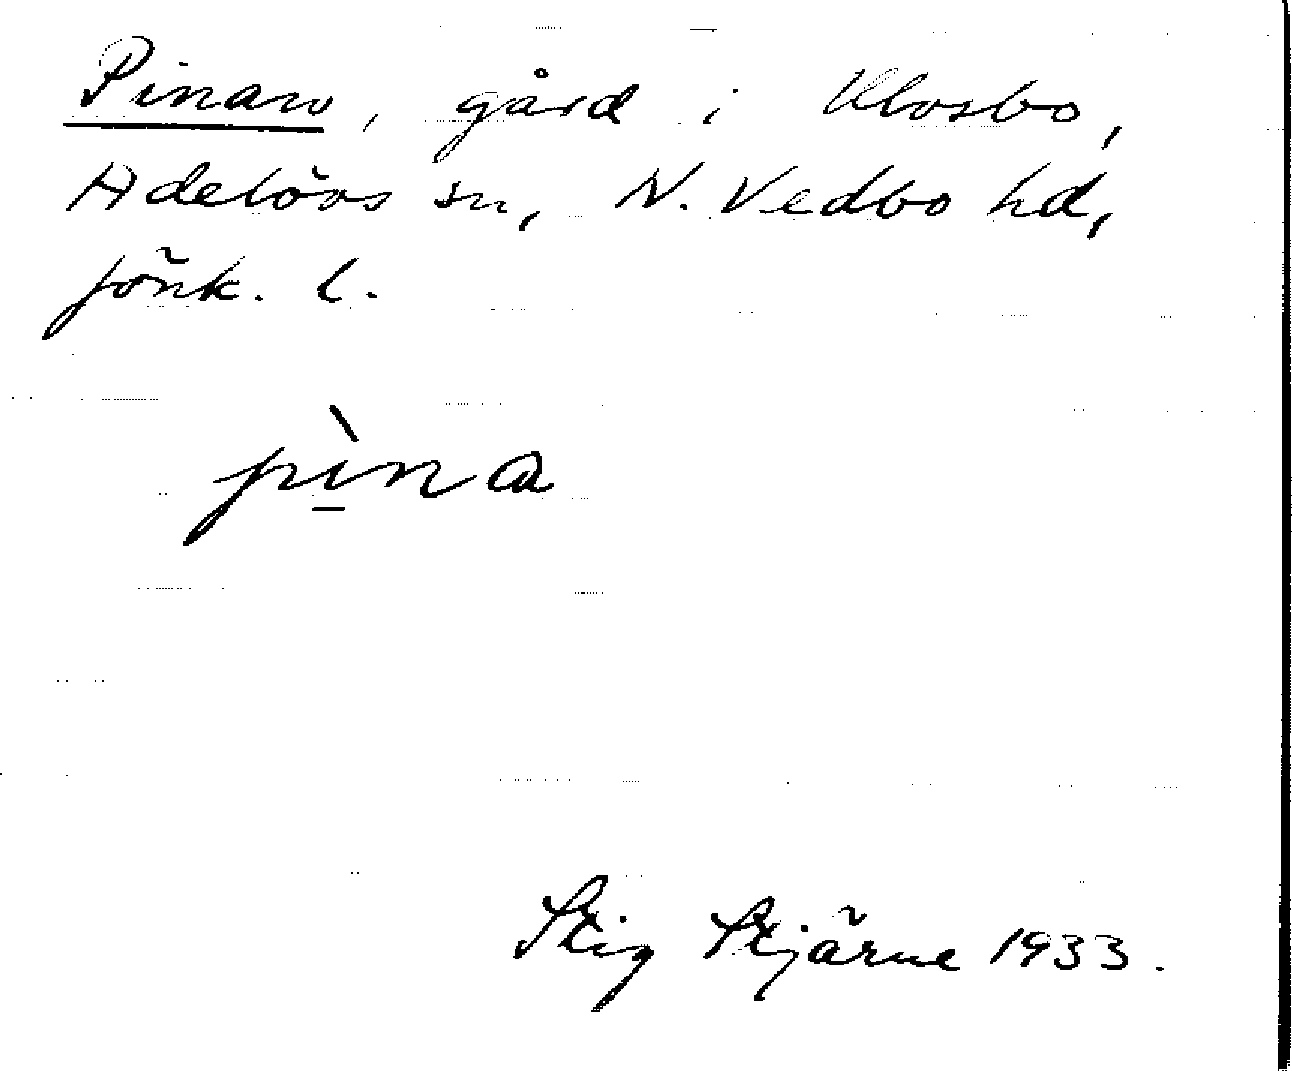 Pinan, gård i Klosbo,
Adelövs sn, N. Vedbo hd,
Jönk. l.
pìna
Stig Stjärne 1933.